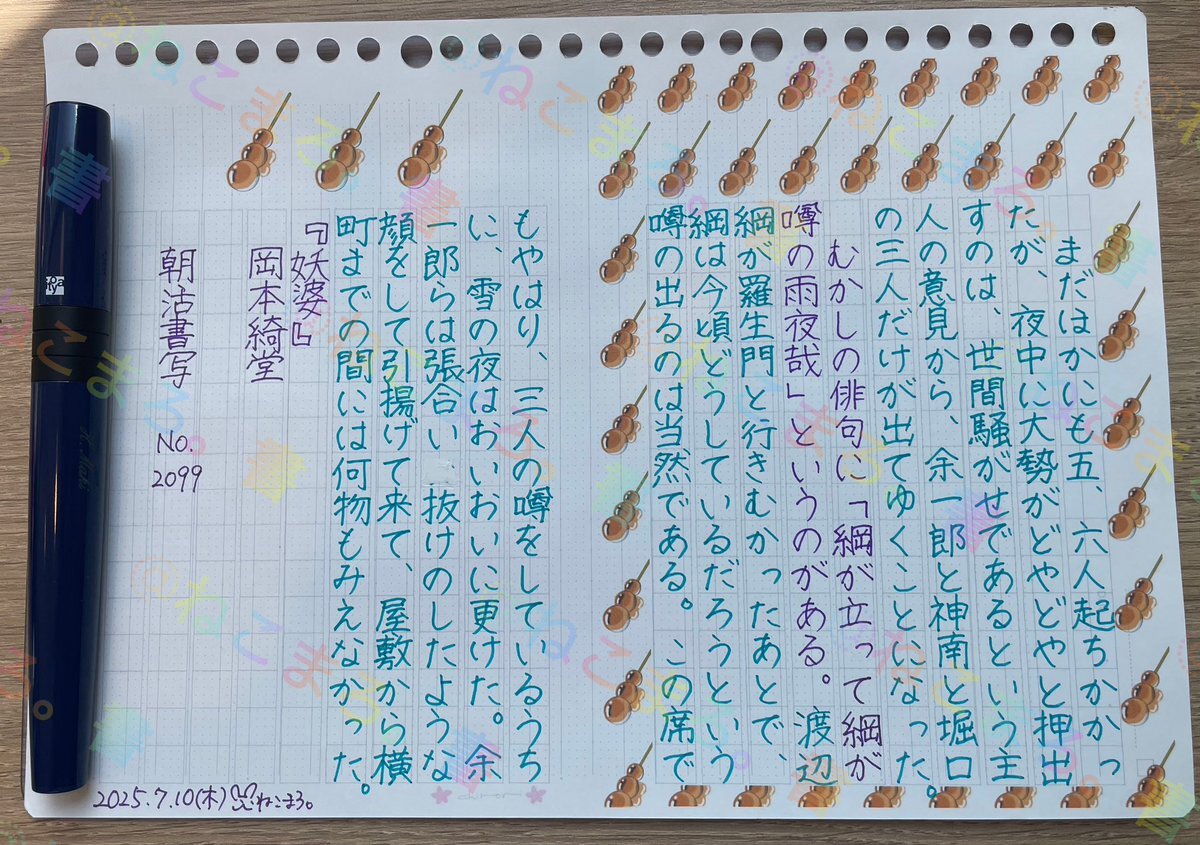 まだほかにも五、六人起ちかかっ
たが、夜中に大勢がどやどやと押出
すのは、世間騒がせであるという主
人の意見から、余一郎と神南と堀口
の三人だけが出てゆくことになった。
むかしの俳句に「綱が立って綱が
噂の雨夜哉」というのがある。渡辺
綱が羅生門と行きむかったあとで、
綱は今頃どうしているだろうという
噂の出るのは当然である。この席で
もやはり、三人の噂をしているうち
に、雪の夜はおいおいに更けた。余
一郎らは張合い抜けのしたような
顔をして引揚げて来て、屋敷から横
町までの間には何物もみえなかった。
『妖婆』
岡本綺堂
朝活書写 NO.2099
2025.7.10(木) ねこまろ。
@ねこまろ。書